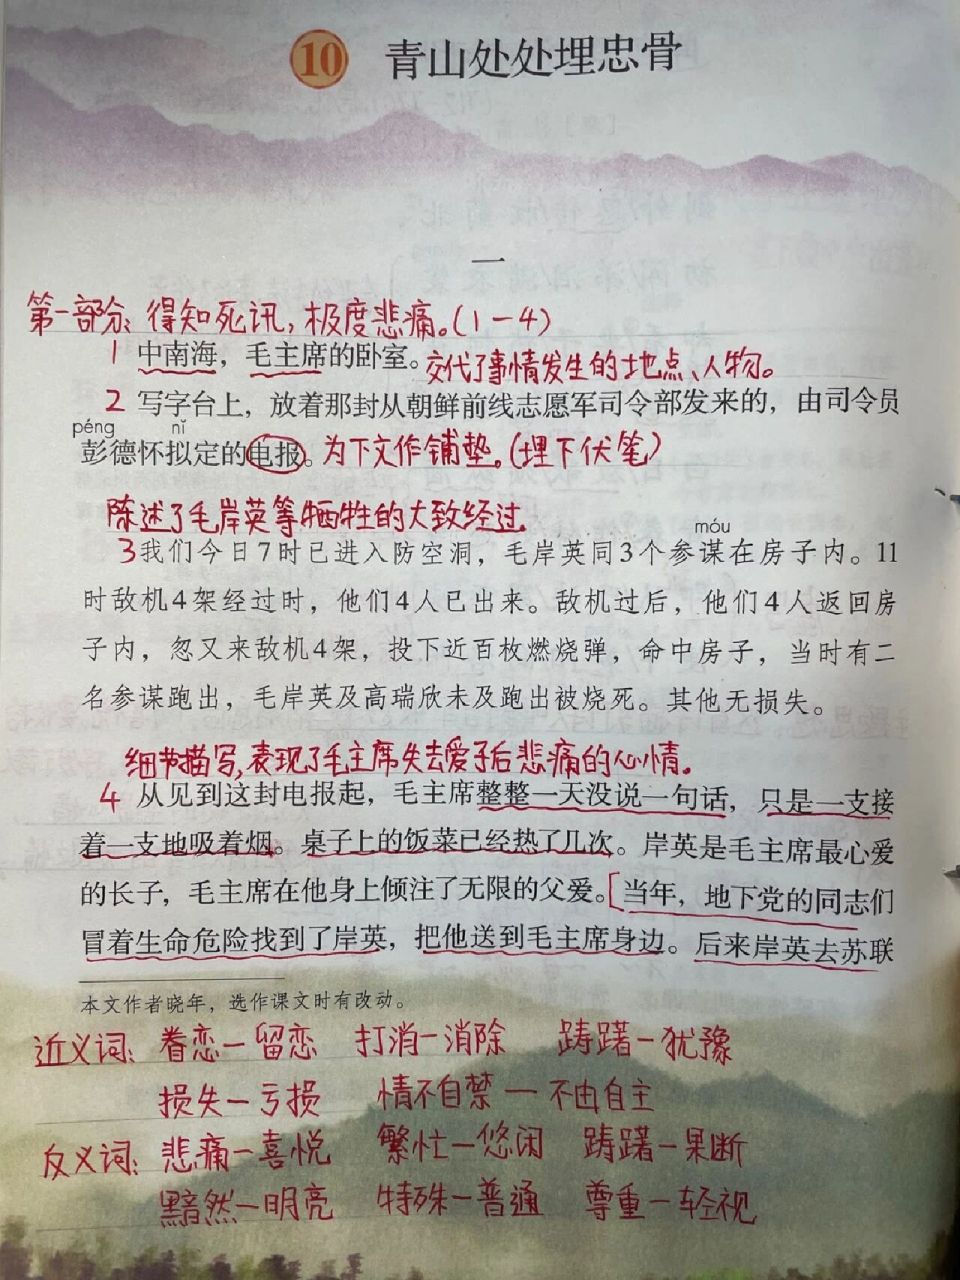 10 青山处处埋忠骨
一
第一部分：得知死讯，极度悲痛。(1-4)
1 中南海，毛主席的卧室。交代了事情发生的地点、人物。
2 写字台上，放着那封从朝鲜前线志愿军司令部发来的，由司令员
péng nǐ
彭德怀拟定的电报。为下文作铺垫。(埋下伏笔)
陈述了毛岸英等牺牲的大致经过.
móu
3 我们今日7时已进入防空洞，毛岸英同3个参谋在房子内。11
时敌机4架经过时，他们4人已出来。敌机过后，他们4人返回房
子内，忽又来敌机4架，投下近百枚燃烧弹，命中房子，当时有二
名参谋跑出，毛岸英及高瑞欣未及跑出被烧死。其他无损失。
细节描写，表现了毛主席失去爱子后悲痛的心情。
4 从见到这封电报起，毛主席整整一天没说一句话，只是一支接
着一支地吸着烟。桌子上的饭菜已经热了几次。岸英是毛主席最心爱
的长子，毛主席在他身上倾注了无限的父爱。[当年，地下党的同志们
冒着生命危险找到了岸英，把他送到毛主席身边。后来岸英去苏联
本文作者晓年，选作课文时有改动。
近义词：眷恋—留恋 打消—消除 踌躇—犹豫
损失—亏损 情不自禁—不由自主
反义词：悲痛—喜悦 繁忙—悠闲 踌躇—果断
黯然—明亮 特殊—普通 尊重—轻视